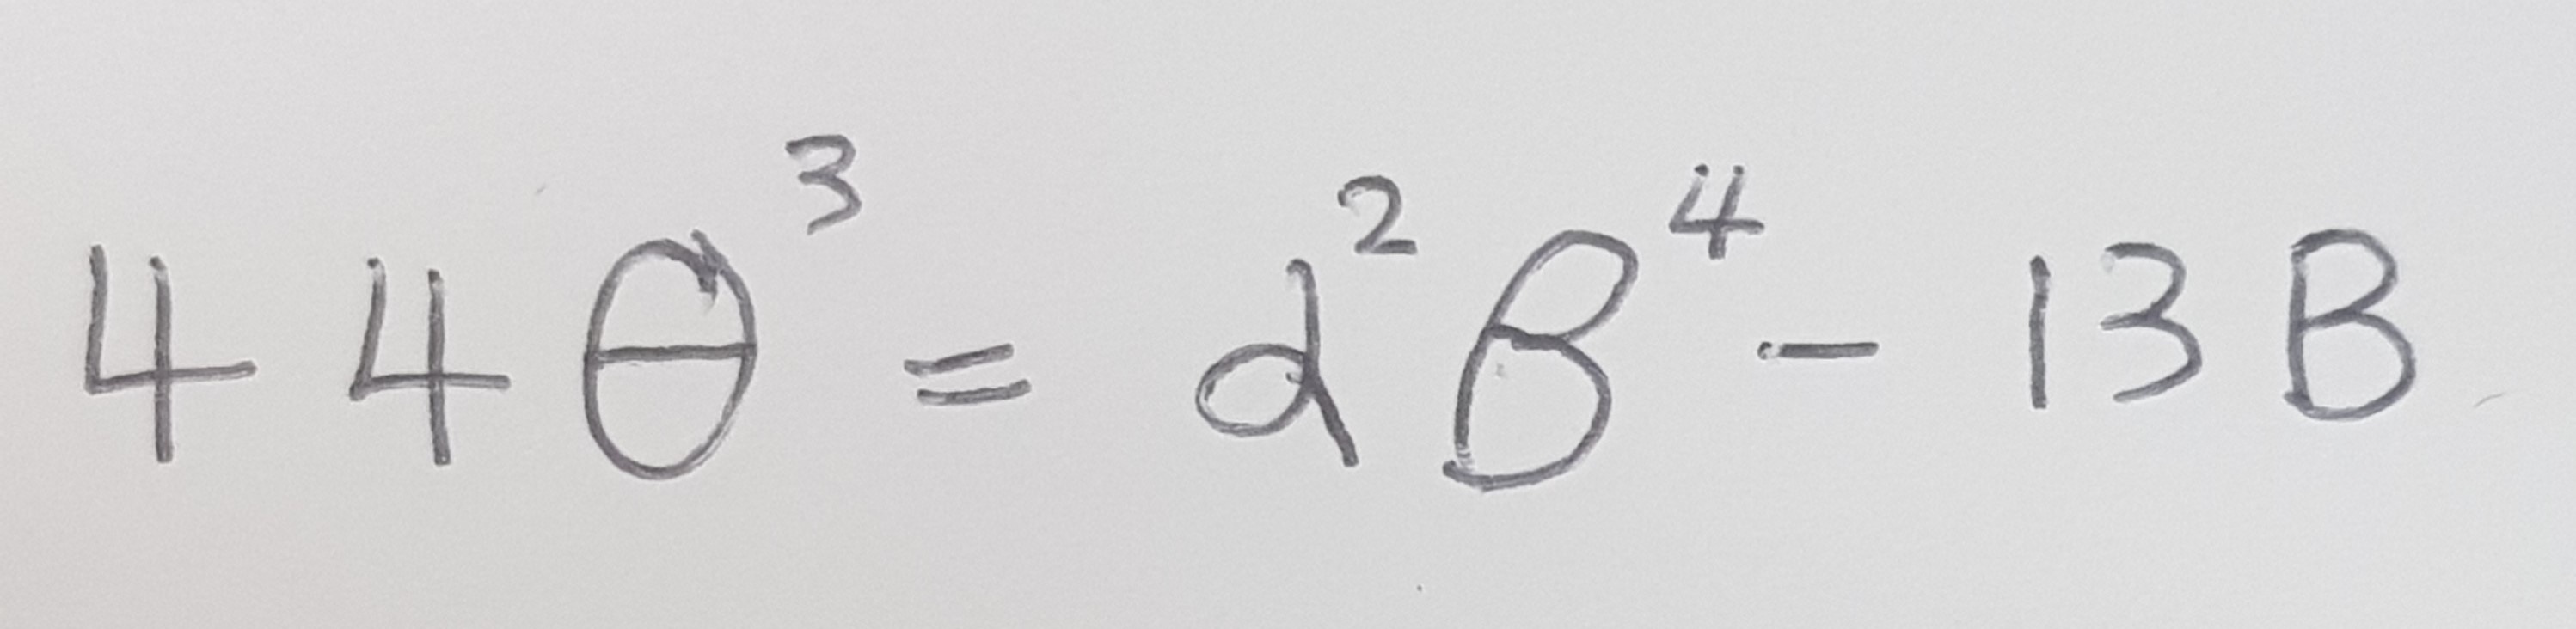 44θ³ = α²β⁴ - 13B